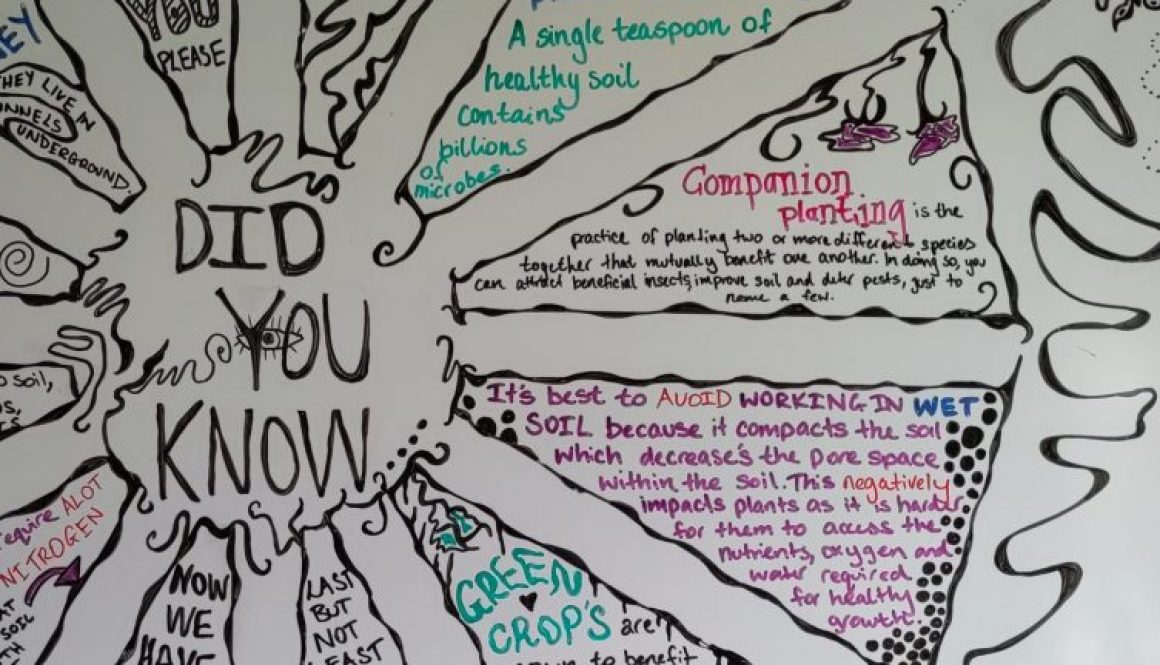 YOU
PLEASE
THEY LIVE IN
UNDERGROUND.
A single teaspoon of
healthy soil
contains
billions
of
microbes.
DID
YOU
KNOW
Companion
planting is the
practice of planting two or more different species
together that mutually benefit one another. In doing so, you
can attract beneficial insects, improve soil and deter pests, just to
name a few.
It's best to AVOID WORKING IN WET
SOIL because it compacts the soil
which decrease's the pore space
within the soil. This negatively
impacts plants as it is harder
for them to access the
nutrients, oxygen and
water required
for healthy
growth.
soil,
require ALOT
NITROGEN
SOIL
NOW
WE
HAVE
LAST
BUT
NOT
LEAST
GREEN
CROP'S are
to benefit